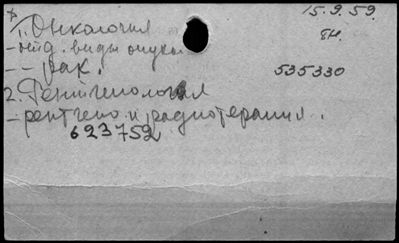 1. Онкология
15.9.59.
- отд. виды опухол.
84.
-- рак.
535330
2. Рентгенология
- рентгено и радиотерапия.
623752